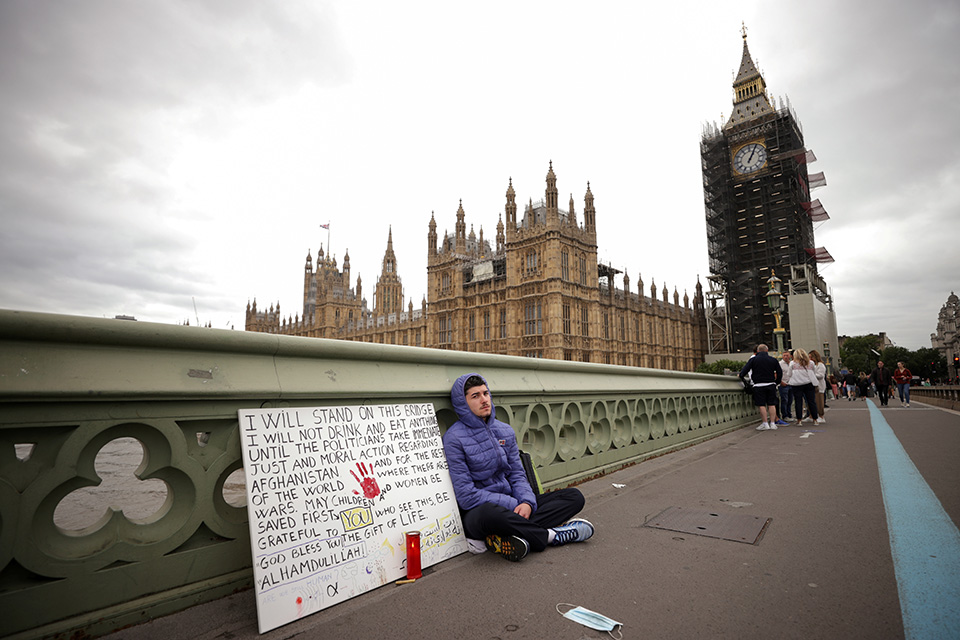 I WILL STAND ON THIS BRIDGE
I WILL NOT DRINK AND EAT ANYTHING
UNTIL THE POLITICIANS TAKE IMMENATE
JUST AND MORAL ACTION REGARDING
AFGHANISTAN AND FOR THE REST
OF THE WORLD WHERE THERE ARE
WARS. MAY CHILDREN AND WOMEN BE
SAVED FIRST. YOU WHO SEE THIS, BE
GRATEFUL TO THE GIFT OF LIFE.
GOD BLESS YOU!
ALHAMDULILLAH!
HUMAN
α